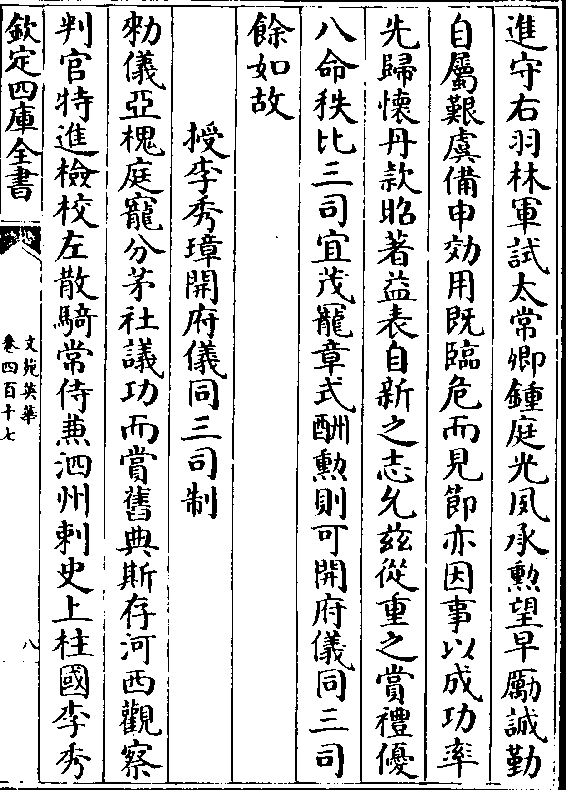 進守右羽林軍試太常卿鍾庭光夙承勲望早勵誠勤
自屬艱虞備申効用既臨危而見節亦因事以成功率
先歸懷丹款昭著益表自新之志允兹從重之賞禮優
八命秩比三司宜茂寵章式酬勲則可開府儀同三司
餘如故
授李秀璋開府儀同三司制
勑儀亞槐庭寵分茅社議功而賞舊典斯存河西觀察
判官特進檢校左散騎常侍兼泗州刺史上柱國李秀
欽定四庫全書
文苑英華
卷四百十七
八